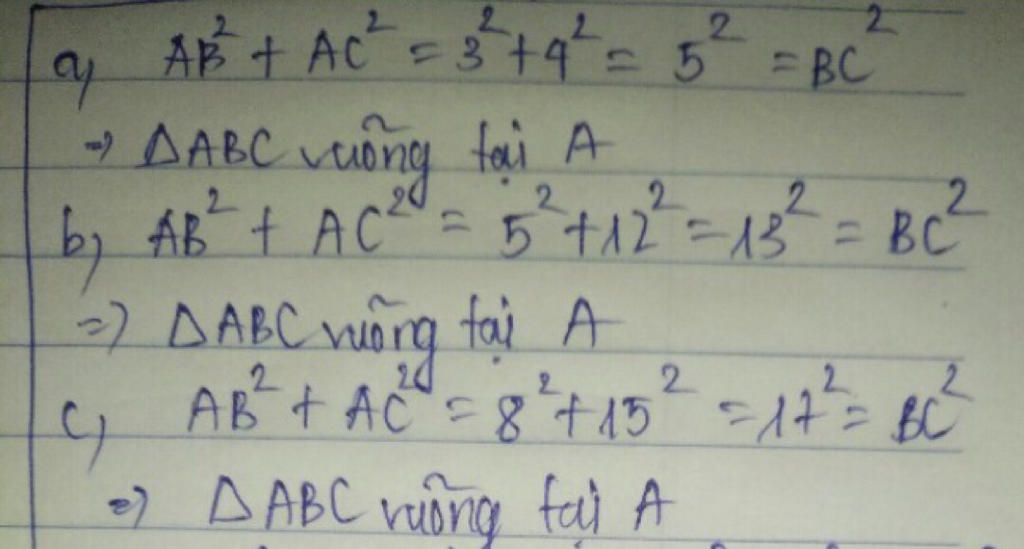 a, AB² + AC² = 3² + 4² = 5² = BC²
=> ΔABC vuông tại A
b, AB² + AC² = 5² + 12² = 13² = BC²
=> ΔABC vuông tại A
c, AB² + AC² = 8² + 15² = 17² = BC²
=> ΔABC vuông tại A